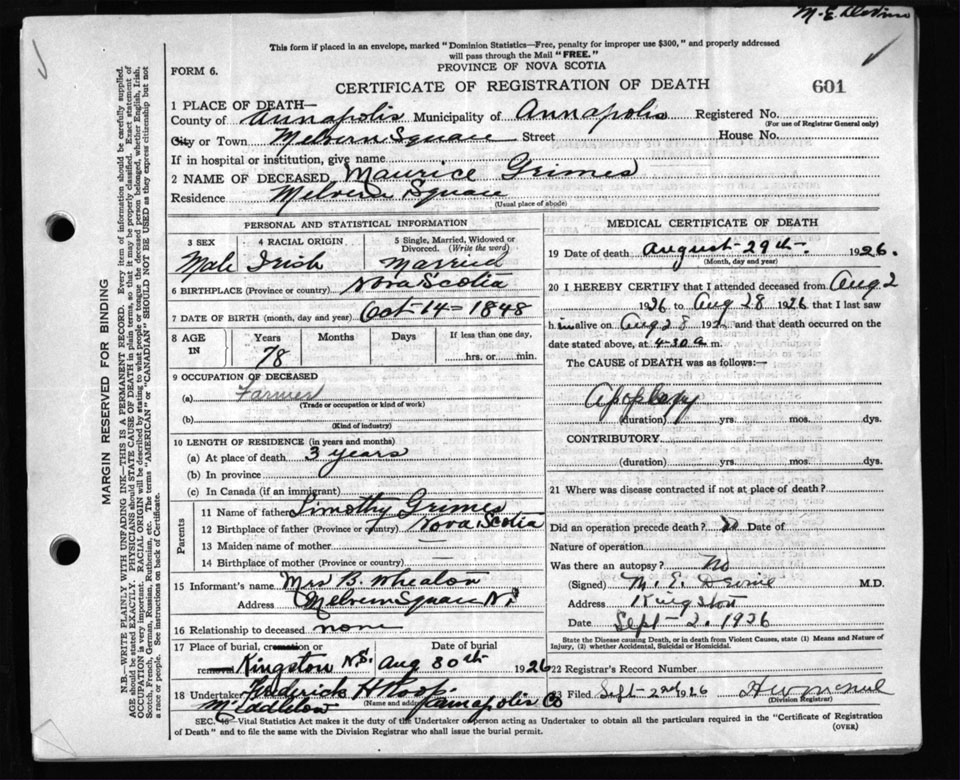 M. E. Devine
This form if placed in an envelope, marked "Dominion Statistics—Free, penalty for improper use $300," and properly addressed
will pass through the Mail "FREE."
PROVINCE OF NOVA SCOTIA
FORM 6.
CERTIFICATE OF REGISTRATION OF DEATH
601
1 PLACE OF DEATH—
County of Annapolis Municipality of Annapolis Registered No.
(For use of Registrar General only)
City or Town Melvern Square Street House No.
If in hospital or institution, give name
2 NAME OF DECEASED Maurice Grimes
Residence Melvern Square
(Usual place of abode)
PERSONAL AND STATISTICAL INFORMATION
3 SEX 4 RACIAL ORIGIN 5 Single, Married, Widowed or
Divorced. (Write the word)
Male Irish Married
6 BIRTHPLACE (Province or country) Nova Scotia
7 DATE OF BIRTH (month, day and year) Oct-14-1848
8 AGE IN Years Months Days If less than one day,
78 hrs. or min.
9 OCCUPATION OF DECEASED
(a) Farmer
(Trade or occupation or kind of work)
(b)
(Kind of industry)
10 LENGTH OF RESIDENCE (in years and months)
(a) At place of death 3 years
(b) In province
(c) In Canada (if an immigrant)
Parents
11 Name of father Timothy Grimes
12 Birthplace of father (Province or country) Nova Scotia
13 Maiden name of mother —
14 Birthplace of mother (Province or country) —
15 Informant's name Mrs B. Wheaton
Address Melvern Square N.S
16 Relationship to deceased none
17 Place of burial, cremation or Date of burial
removal Kingston N.S. Aug 30th 1926
18 Undertaker Frederick H
(Name and address)
Middleton Annapolis Co
MEDICAL CERTIFICATE OF DEATH
19 Date of death August-29th- 1926.
(Month, day and year)
20 I HEREBY CERTIFY that I attended deceased from Aug 2
1926 to Aug 28 1926 that I last saw
him alive on Aug 28 1926 and that death occurred on the
date stated above, at 4-30 a m.
The CAUSE OF DEATH was as follows:—
Apoplexy
(duration) yrs. mos. dys.
CONTRIBUTORY
(duration) yrs. mos. dys.
21 Where was disease contracted if not at place of death?
Did an operation precede death? No Date of
Nature of operation
Was there an autopsy? No
(Signed) M. E. Devine M.D.
Address Kingston
Date Sept-2. 1926
State the Disease causing Death, or in death from Violent Causes, state (1) Means and Nature of
Injury, (2) whether Accidental, Suicidal or Homicidal.
22 Registrar's Record Number
23 Filed Sept 2nd 1926
(Division Registrar)
SEC. 40—Vital Statistics Act makes it the duty of the Undertaker or person acting as Undertaker to obtain all the particulars required in the "Certificate of Registration
of Death" and to file the same with the Division Registrar who shall issue the burial permit.
(OVER)
MARGIN RESERVED FOR BINDING
N.B.—WRITE PLAINLY WITH UNFADING INK—THIS IS A PERMANENT RECORD. Every item of information should be carefully supplied.
AGE should be stated EXACTLY. PHYSICIANS should STATE CAUSE OF DEATH in plain terms, so that it may be properly classified. Exact statement of
OCCUPATION is very important. RACIAL ORIGIN will be described by stating to what people or tongue the deceased person belonged, whether English, Irish,
Scotch, French, German, Russian, Ruthenian, etc. The terms "AMERICAN" or "CANADIAN" SHOULD NOT BE USED as they express citizenship but not
a race or people. See instructions on back of Certificate.